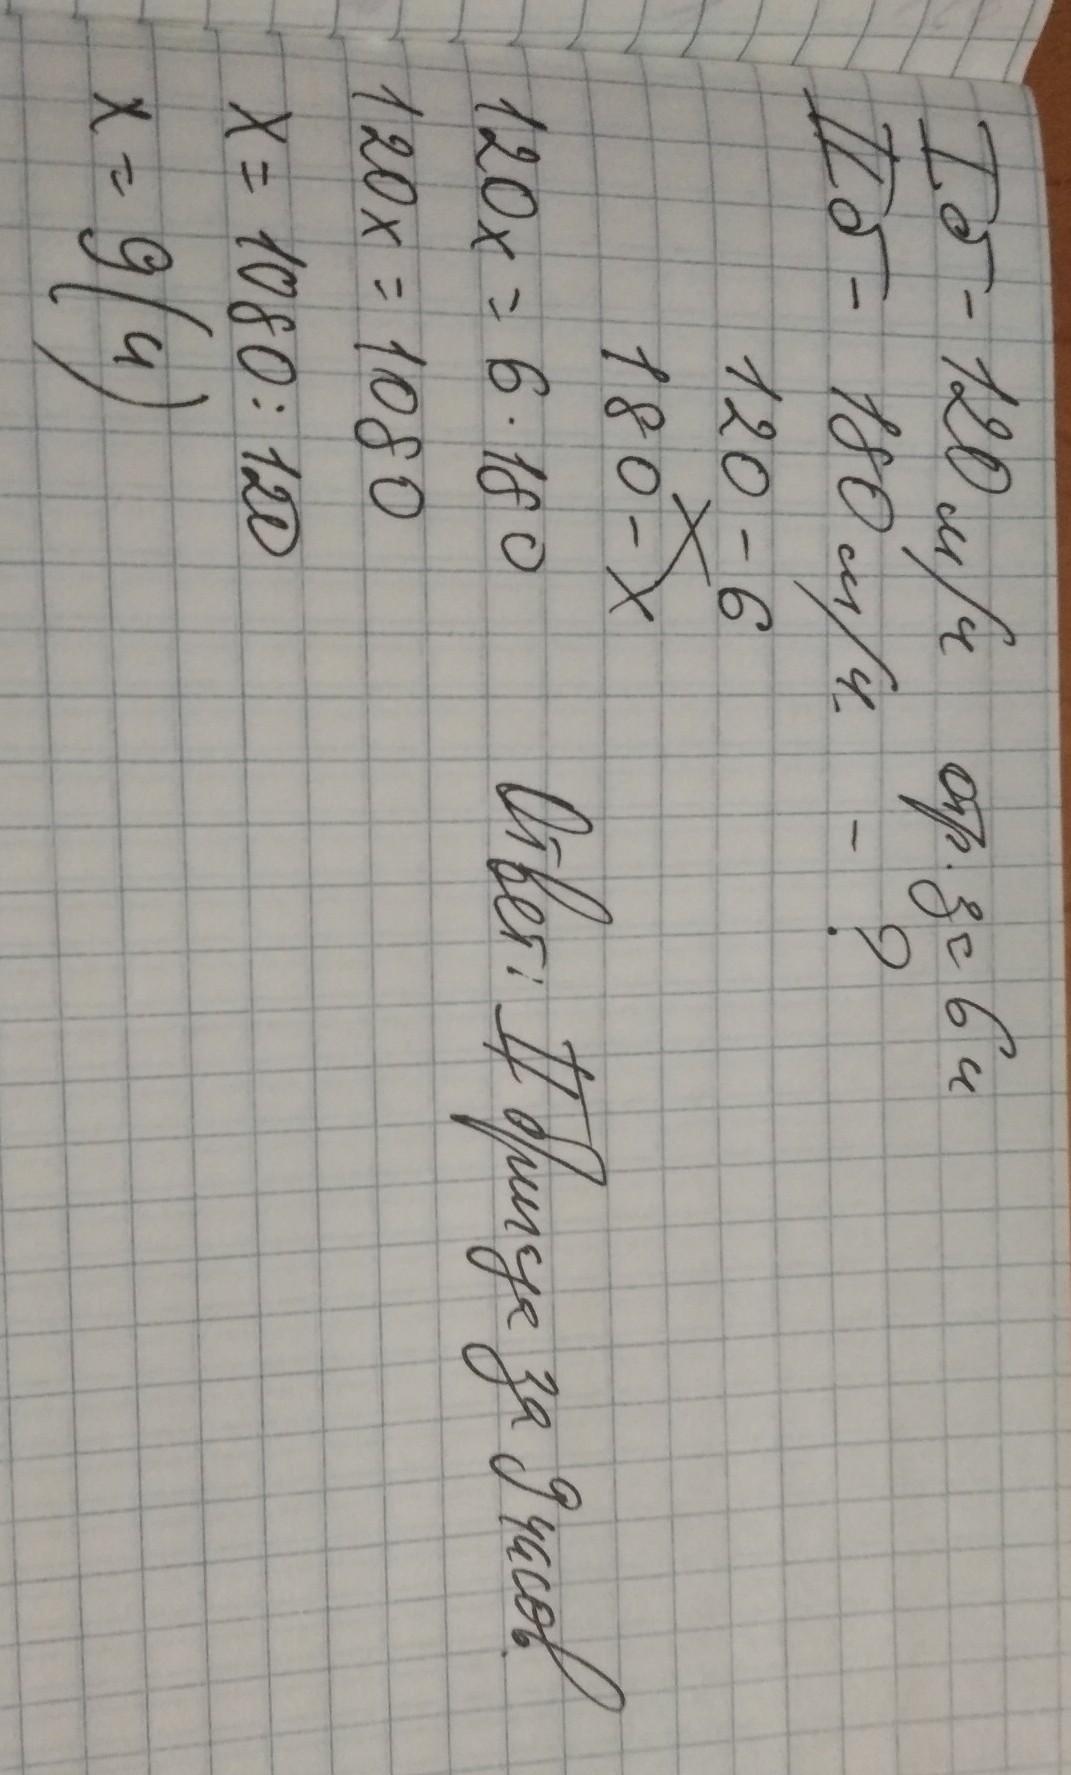 I б - 120 м/ч вр. 3 = 6 ч
II б - 180 м/ч - ?
120 - 6
180 - x
120x = 6 · 180
120x = 1080
x = 1080 : 120
x = 9 (ч)
Ответ: II бригада за 9 часов.